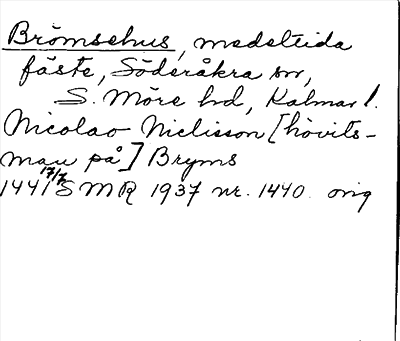 Brömsehus, medeltida
fäste, Söderåkra sn,
S. Möre hd, Kalmar l.
Nicolao Niclisson [hövits-
man på] Bryms
1441 17/7 SMR 1937 nr. 1440. orig